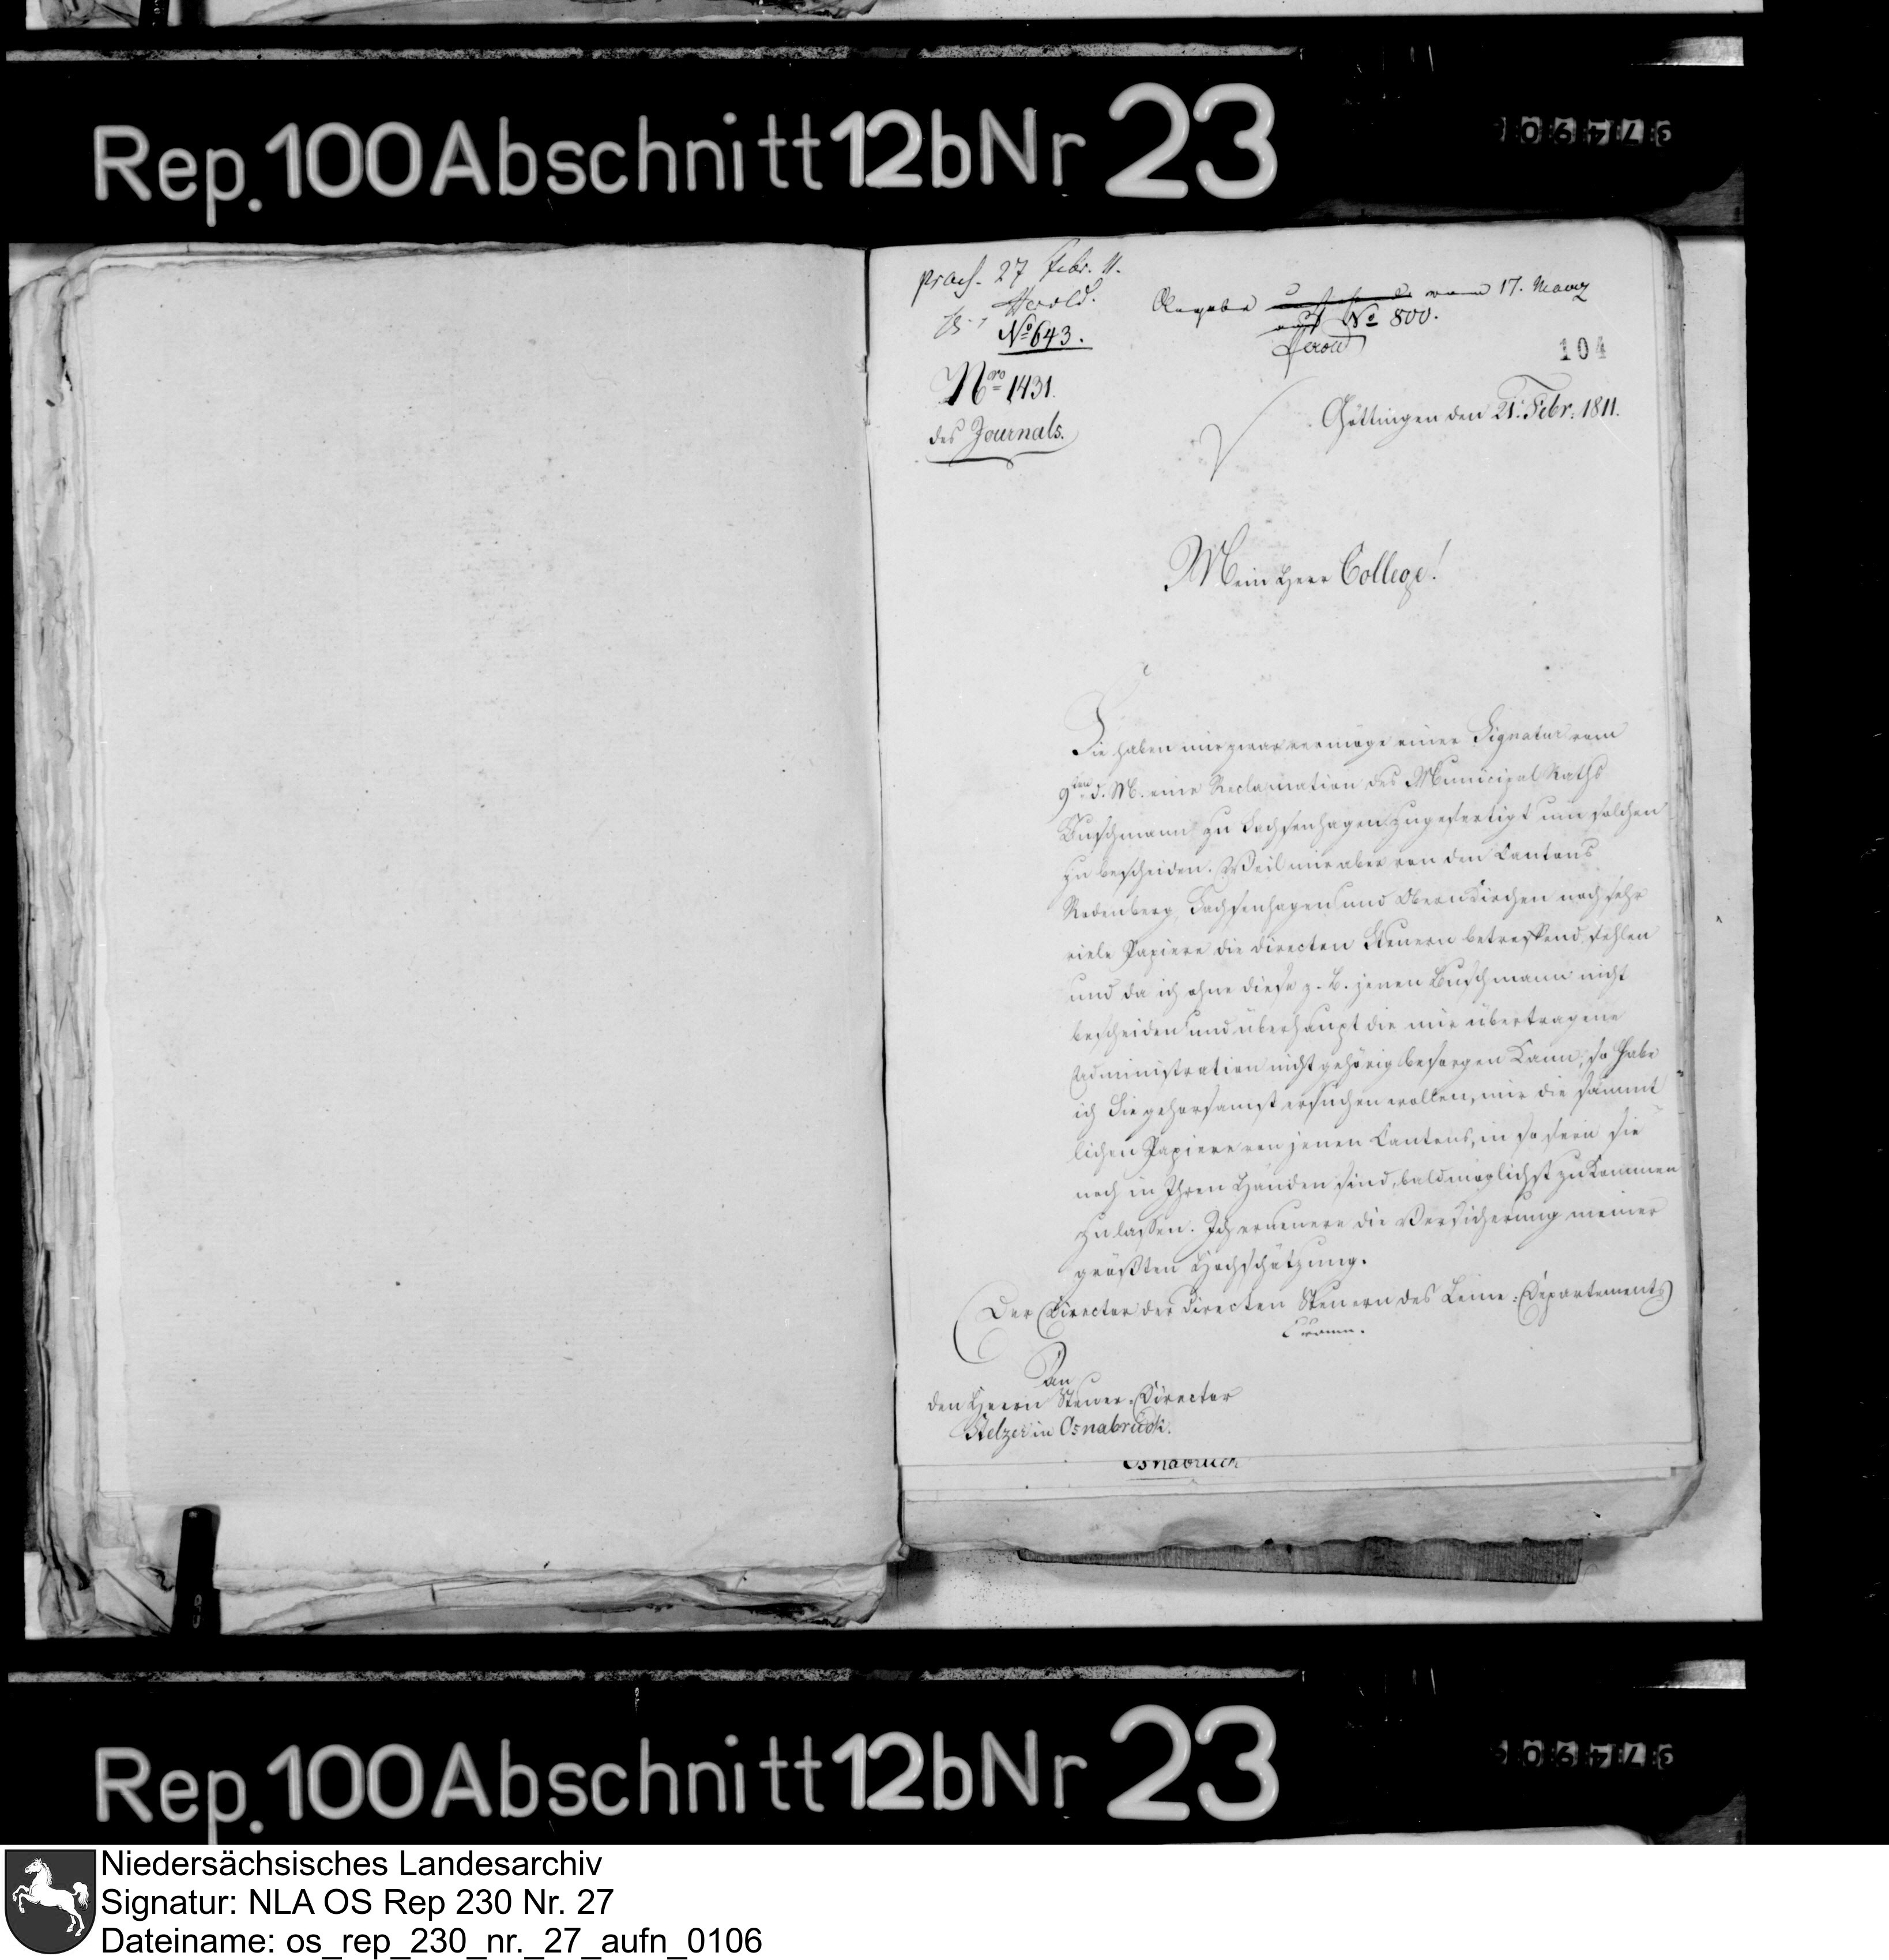 Rep. 100 Abschnitt 12b Nr 23
praes. 27 Febr. 11.
Herold.
No 643.
vom 17. Maerz
No 800.
Herold
104
Nro 1431.
des Journals.
Göttingen den 21. Febr. 1811.
Mein Herr College!
Sie haben mir zwar vermöge einer Signatur vom
9ten d. M. eine Reclamation des Municipal Raths
Buschmann zu Sachsenhagen zugefertigt um solchen
zu bescheiden. Weil mir aber von den Cantons
Rodenberg, Sachsenhagen und Obernkirchen noch sehr
viele Papiere die directen Steuern betreffend, fehlen
und da ich ohne diese z. B. jenen Buschmann nicht
bescheiden und überhaupt die mir übertragene
Administration nicht gehörig besorgen kann; so habe
ich Sie gehorsamst ersuchen wollen, mir die sämmt
lichen Papiere von jenen Cantons, in so fern sie
noch in Ihren Händen sind, baldmöglichst zukommen
zu lassen. Ich erneuere die Versicherung meiner
größten Hochschätzung.
Der Director der directen Steuern des Leine-Departements
An
den Herrn Steuer-Director
Stelzer in Osnabrück.
Osnabrück
Rep. 100 Abschnitt 12b Nr 23
Niedersächsisches Landesarchiv
Signatur: NLA OS Rep 230 Nr. 27
Dateiname: os_rep_230_nr._27_aufn_0106